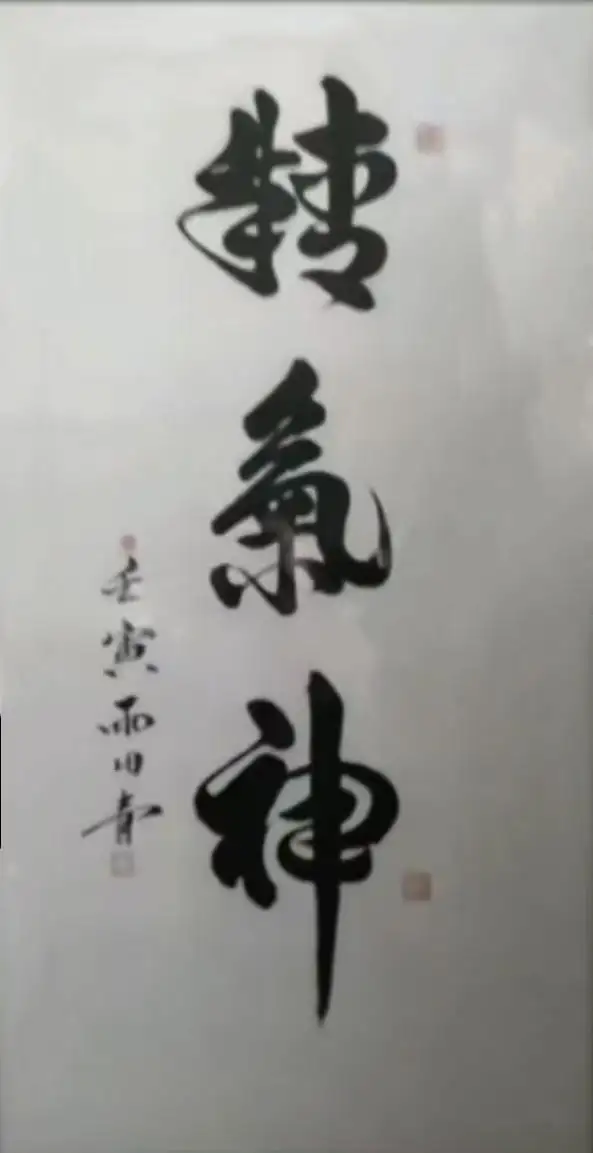 精氣神
壬寅雨田青